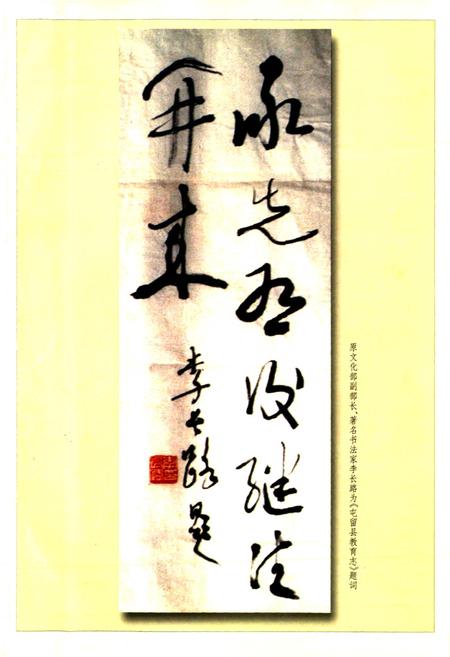 承先启後继往
开来
李长路题
原文化部副部长、著名书法家李长路为《屯留县教育志》题词